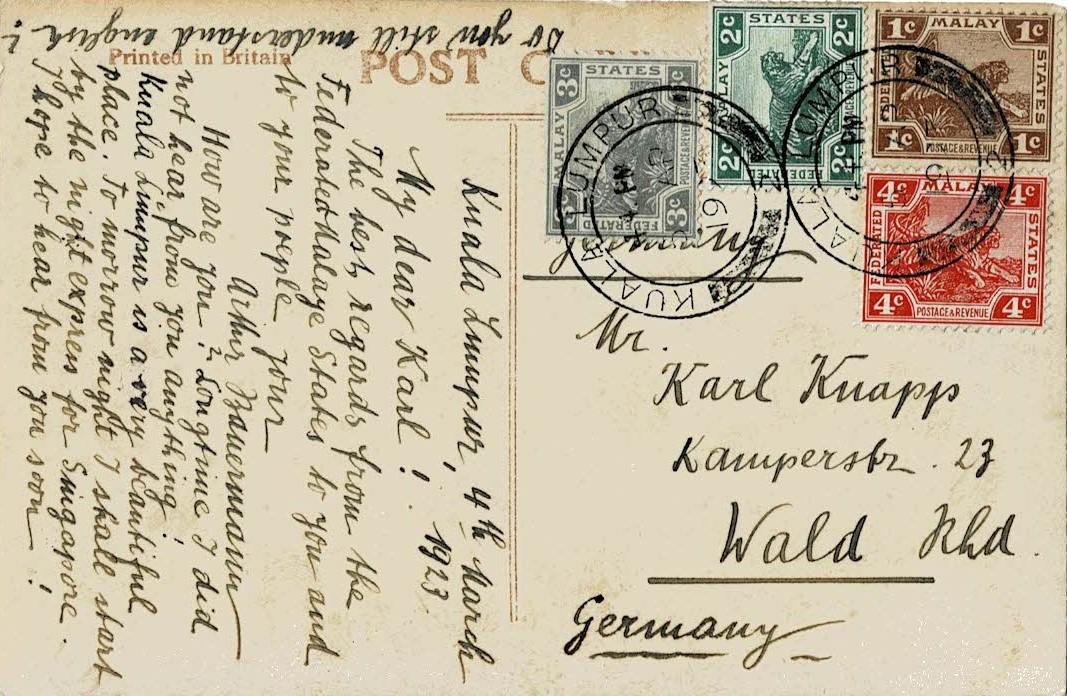 Do you still understand english?
Printed in Britain
POST C
Kuala Lumpur, 4th March
1923
My dear Karl!
The best regards from the
Federated Malaye States to you and
to your people
Your
Arthur Bauermann
How are you? Longtime I did
not hear from you anything!
Kuala Lumpur is a very beautiful
place. To morrow night I shall start
by the night express for Singapore.
I hope to hear from you soon!
STATES
3c
MALAY
POSTAGE & REVENUE
3c 3c
FEDERATED
STATES
2c 2c
MALAY
POSTAGE & REVENUE
2c 2c
FEDERATED
MALAY
1c 1c
FEDERATED
STATES
POSTAGE & REVENUE
1c
MALAY
4c 4c
FEDERATED
STATES
4c 4c
POSTAGE & REVENUE
KUALA LUMPUR
KUALA LUMPUR 2
PM
Germany
Mr.
Karl Knapp
Kamperstr. 23
Wald Rhd.
Germany